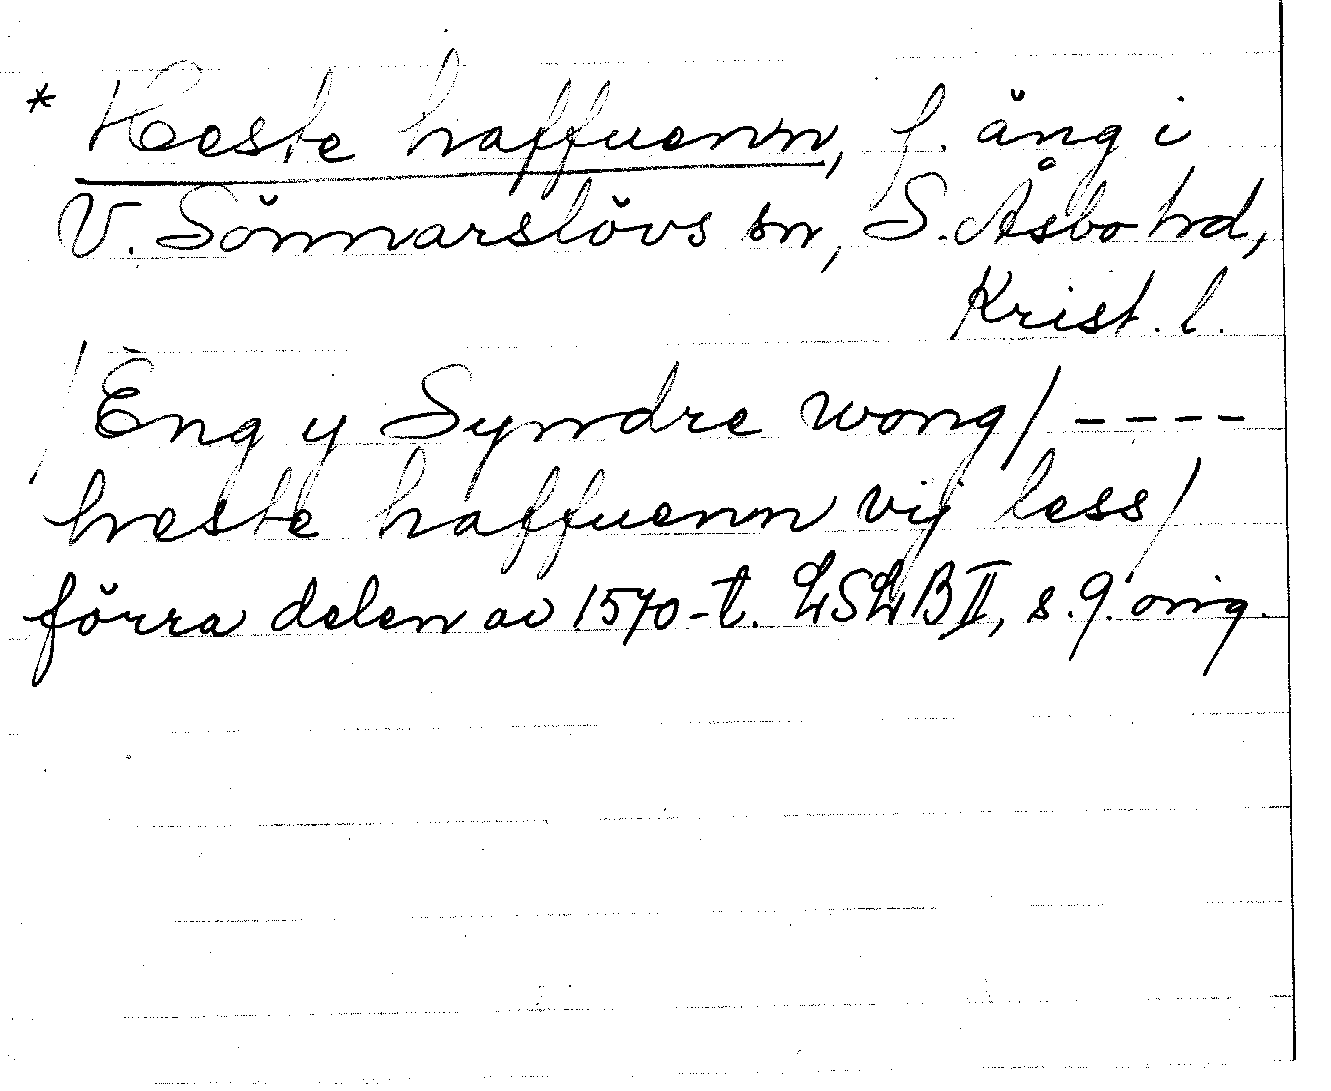 * Heste haffuenn, f. äng i
V. Sönnarslövs sn, S. Åsbo hd,
Krist. l.
/Eng y Syndre wong/ ----
heste haffuenn vij less/
förra delen av 1570-t. LSLB II, s. 9. orig.